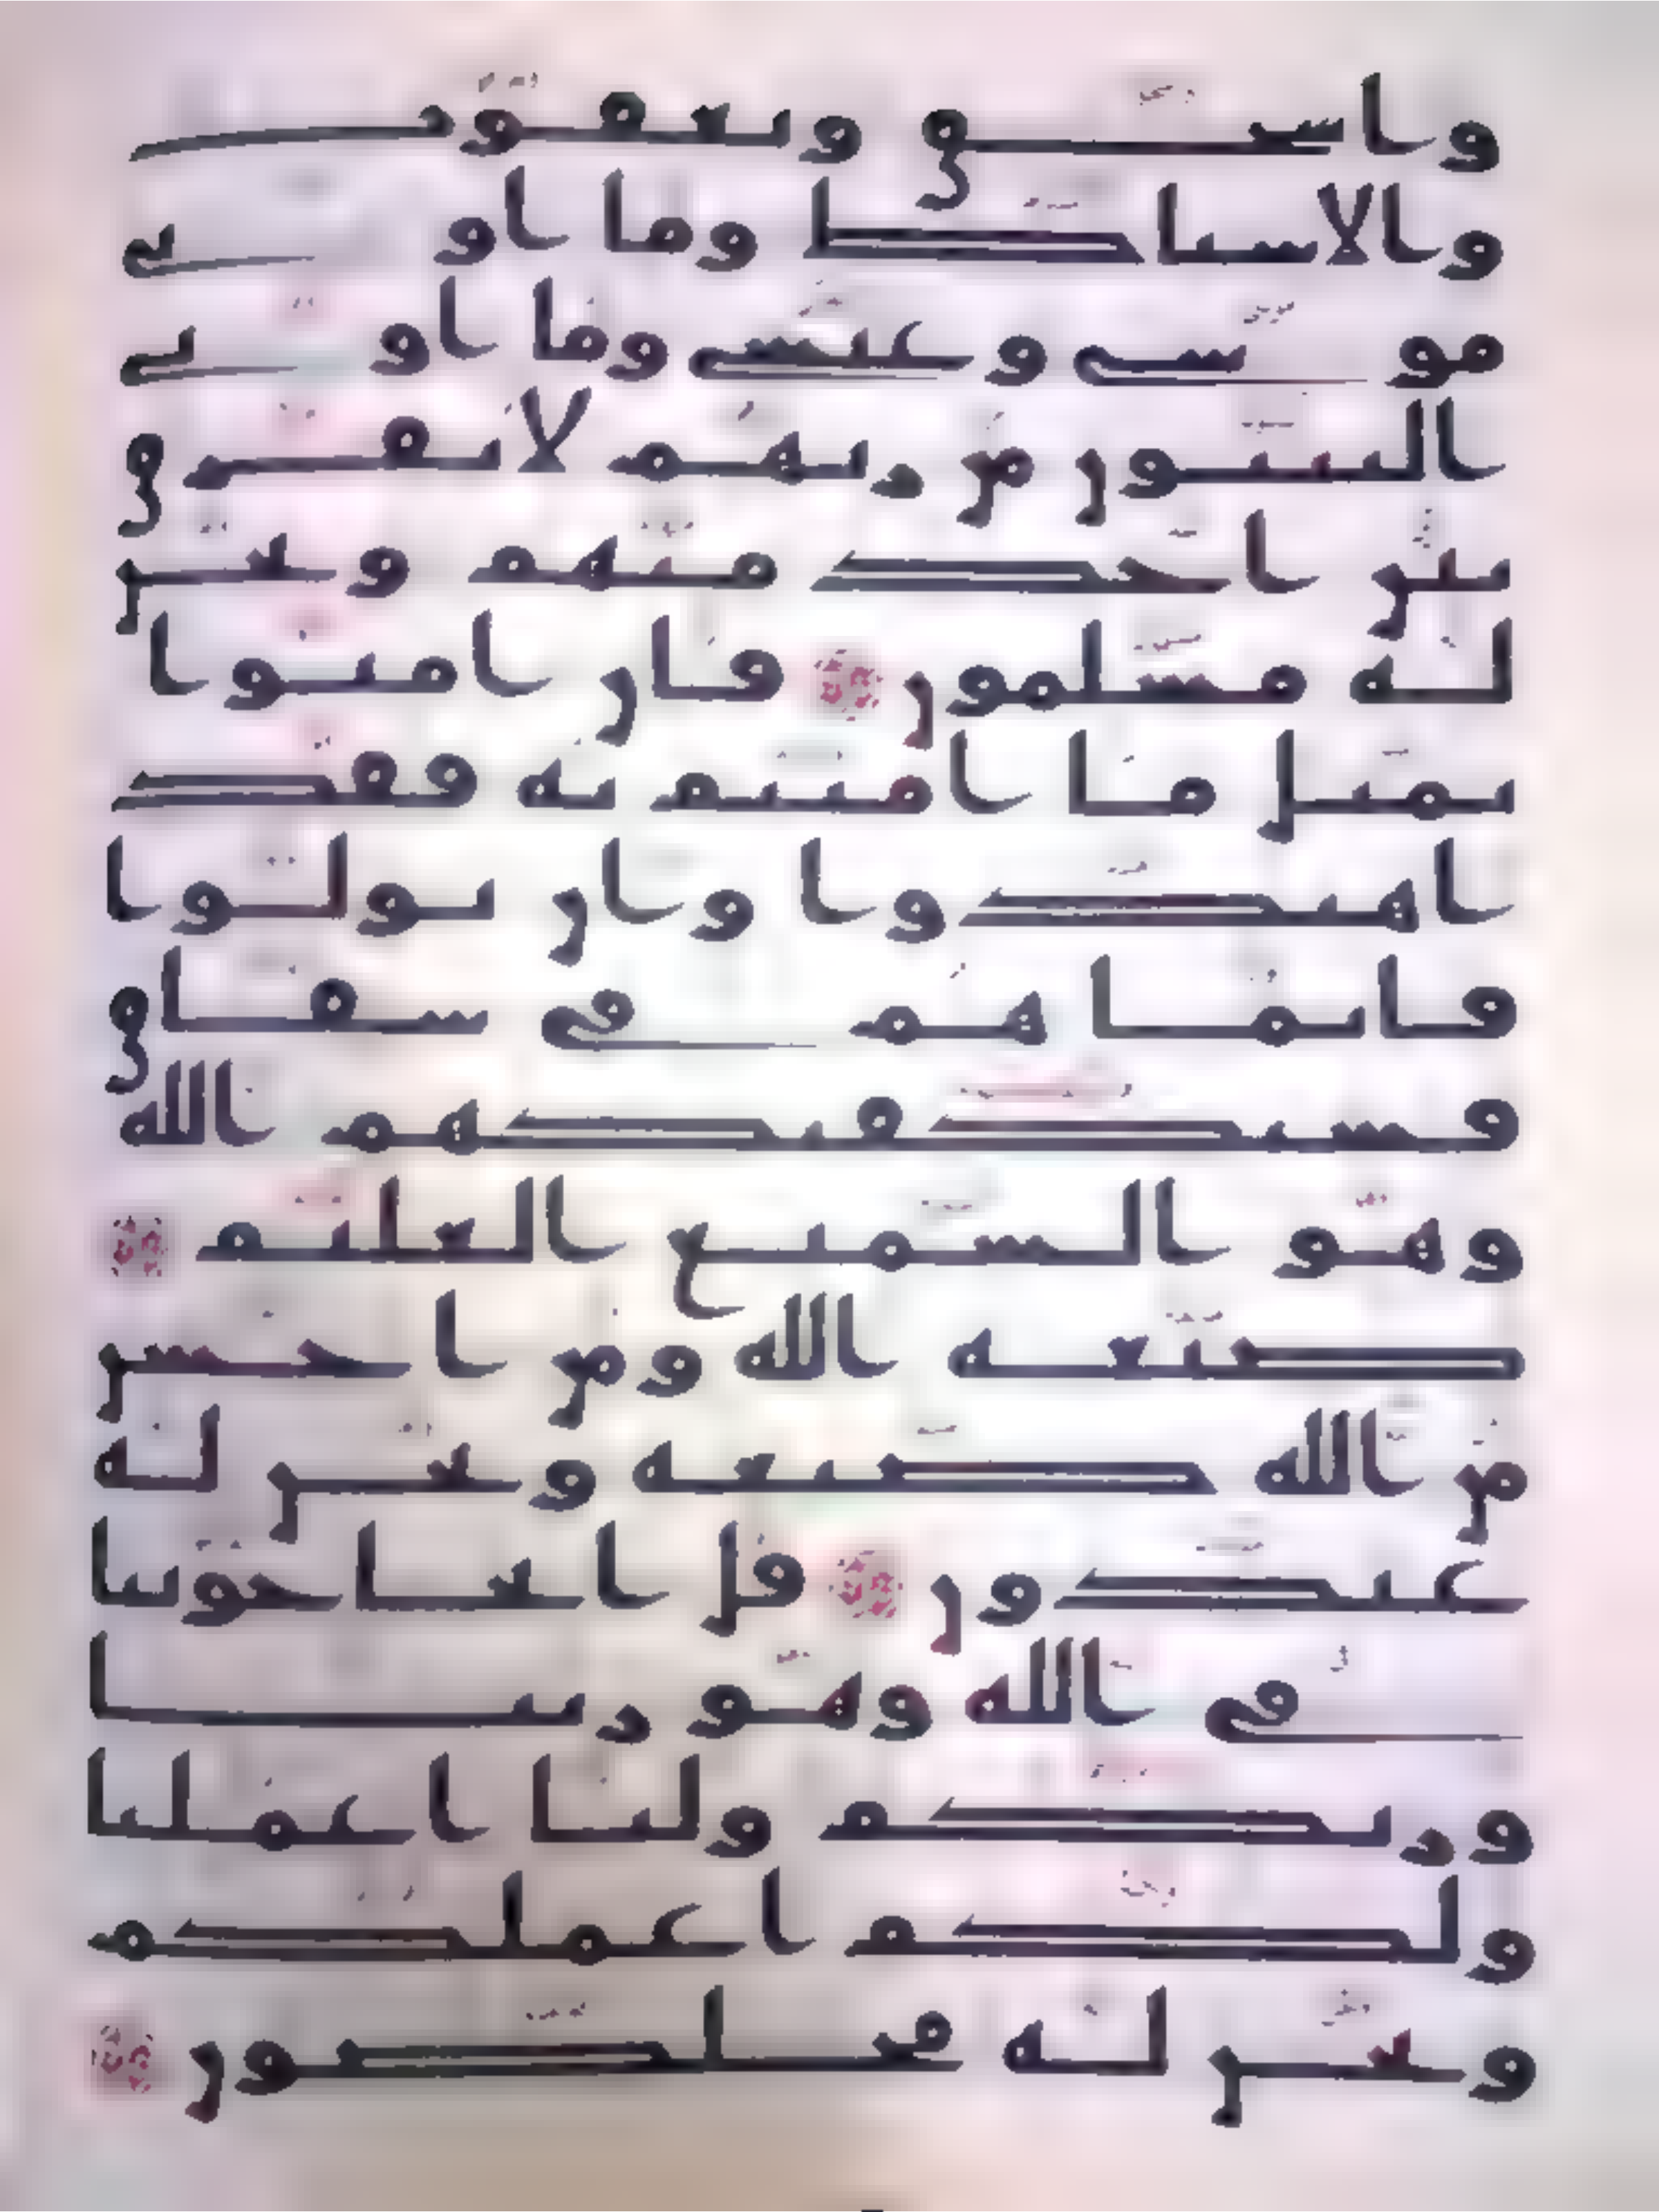 واسحق ويعقوب
والاسباط وما اوتي
موسى وعيسى وما اوتي
النبيون من ربهم لا نفرق
بين احد منهم ونحن
له مسلمون ۝ فان امنوا
بمثل ما امنتم به فقد
اهتدوا وان تولوا
فانما هم في شقاق
فسيكفيكهم الله
وهو السميع العليم ۝
صبغة الله ومن احسن
من الله صبغة ونحن له
عبدون ۝ قل اتحاجوننا
في الله وهو ربنا
وربكم ولنا اعملنا
ولكم اعملكم
ونحن له مخلصون ۝